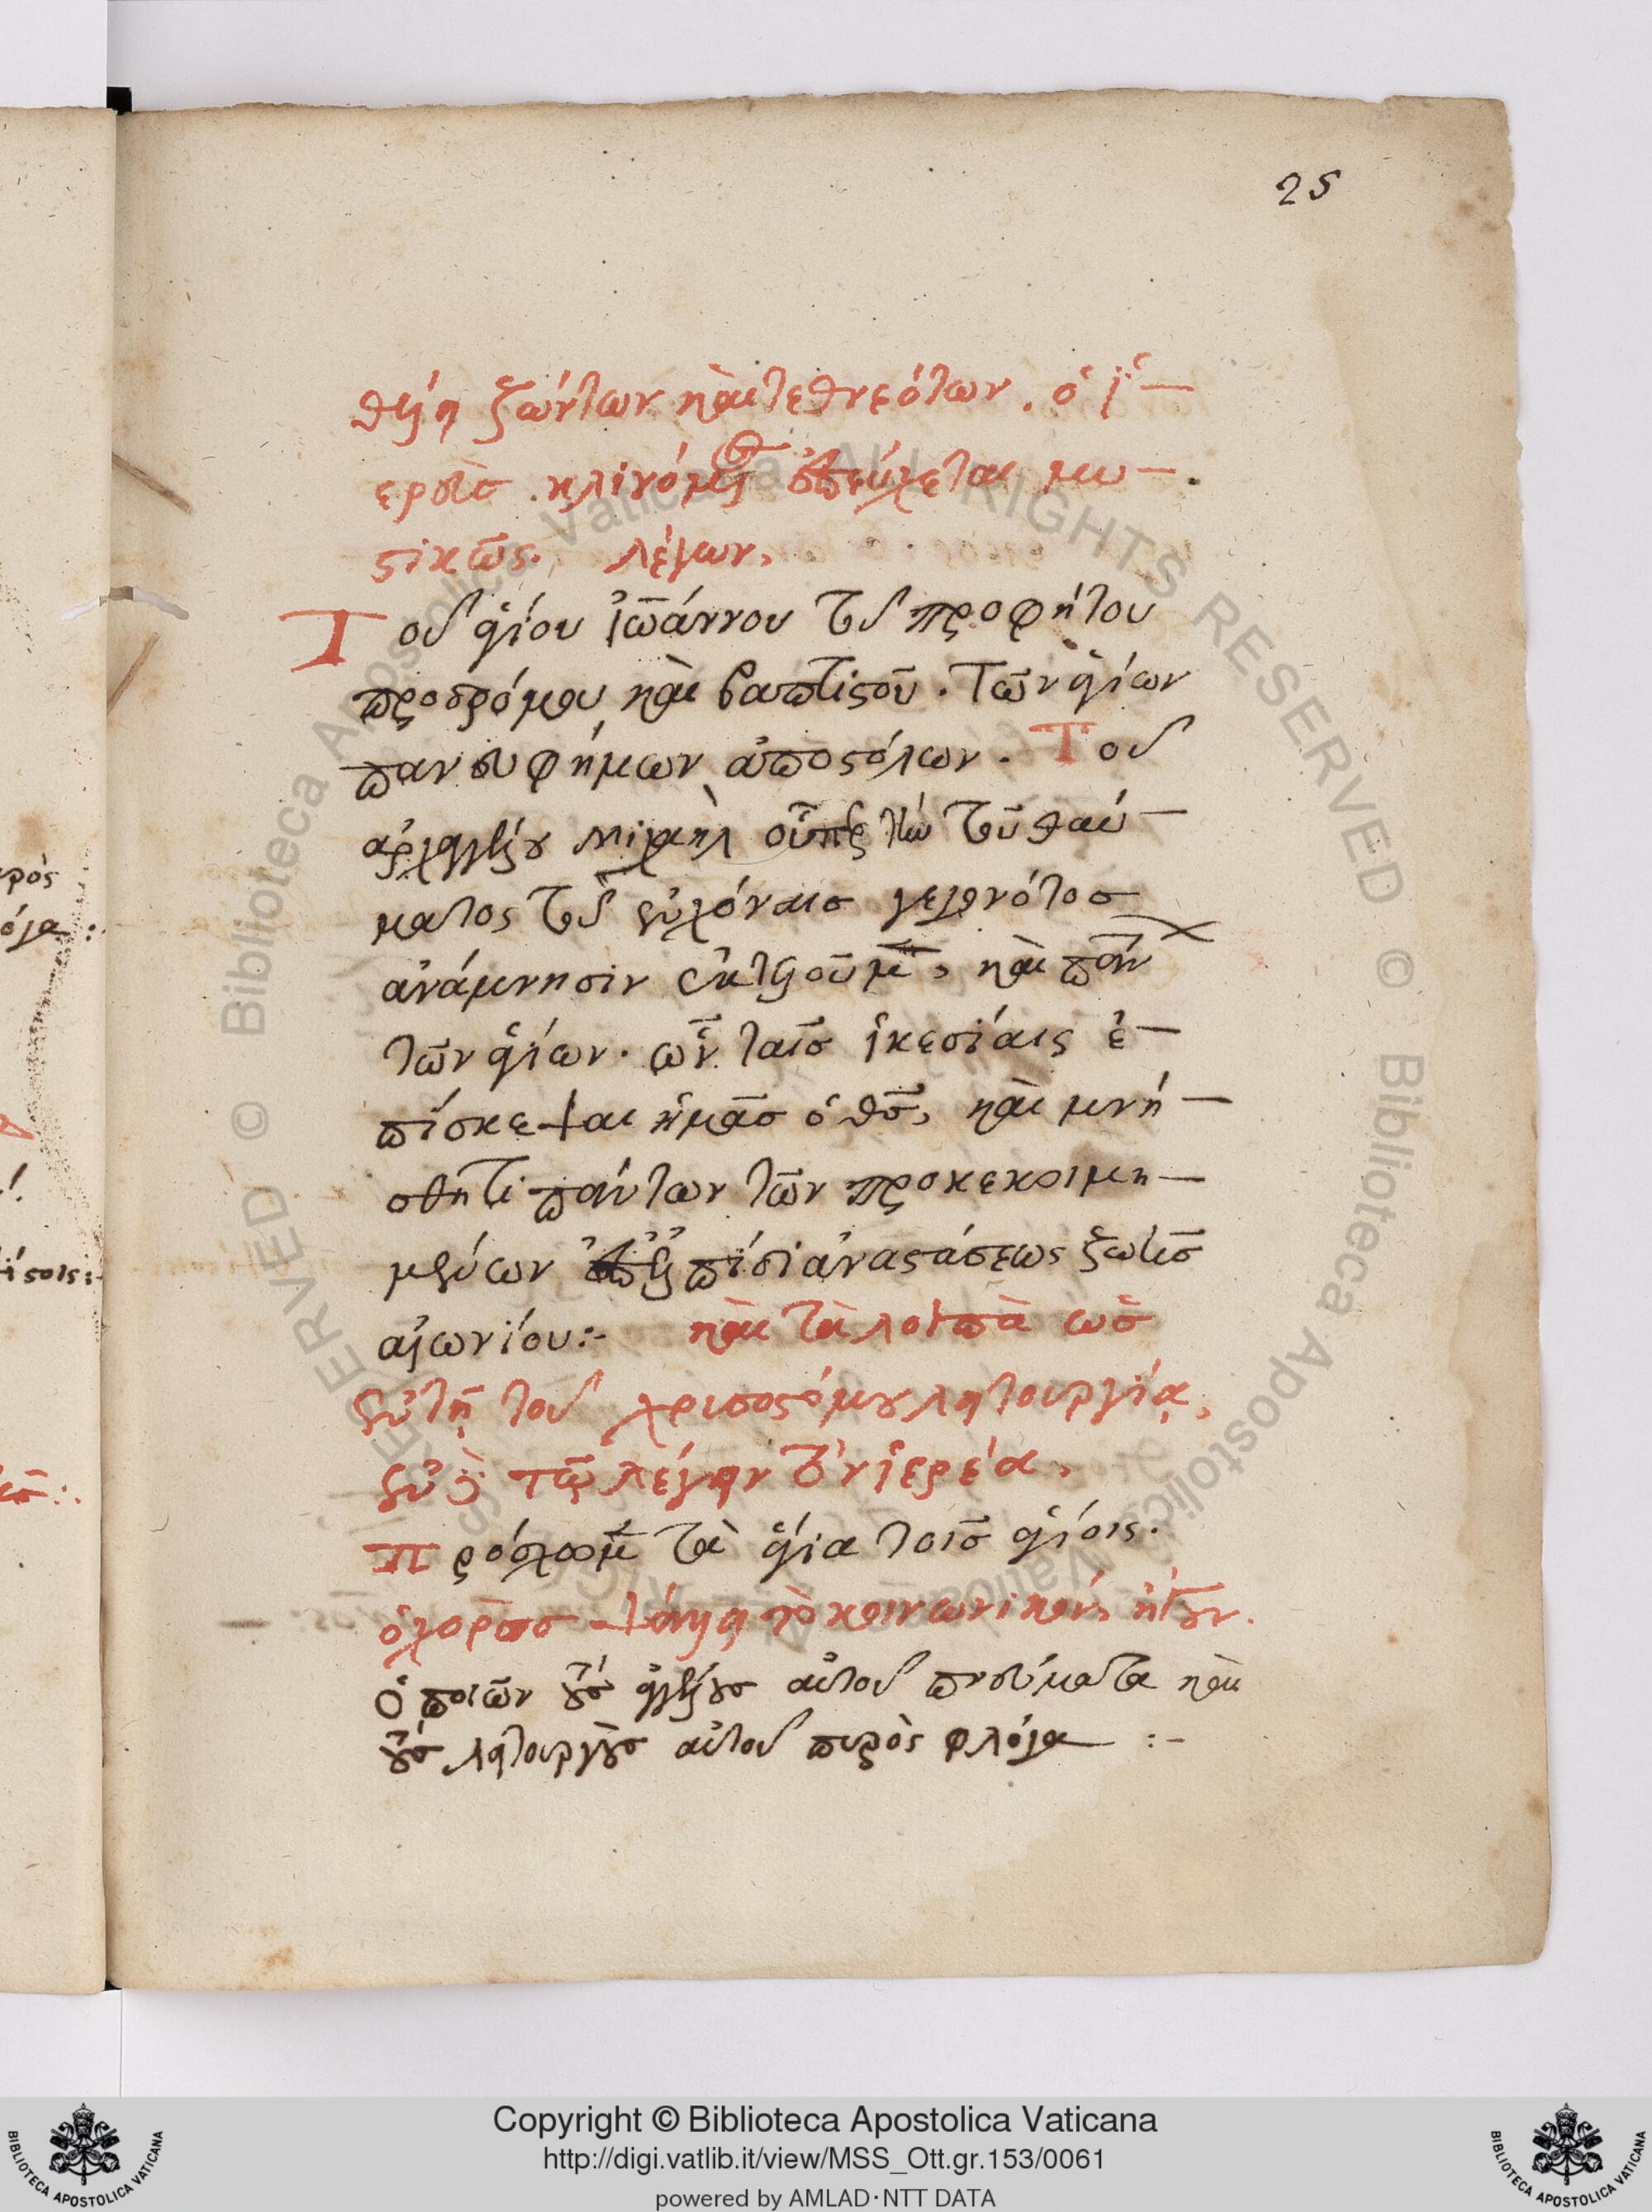 25
θέλει ζώντων καὶ τεθνεότων. ὁ ἱ-
ερεὺς κλινόμενος ἐπεύχεται μυ-
στικῶς. λέγων,
Τοῦ ἁγίου Ἰωάννου τοῦ προφήτου
προδρόμου καὶ βαπτιστοῦ. τῶν ἁγίων
πανευφήμων ἀποστόλων. Τοῦ
ἀρχαγγέλου Μιχαὴλ οὗπερ τὴν τοῦ θαύ-
ματος τοῦ ἐν χόναις γεγονότος
ἀνάμνησιν ἐκτελοῦμεν, καὶ πάν
των ἁγίων. ὧν ταῖς ἱκεσίαις ἐ-
πίσκεψαι ἡμᾶς ὁ θς, καὶ μνή-
σθητι πάντων τῶν προκεκοιμη-
μένων ἐπ' ἐλπίδι ἀναστάσεως ζωῆς
αἰωνίου:- καὶ τὰ λοιπὰ ὡς
ἐν τῇ τοῦ χρυσοστόμου λειτουργίᾳ,
ἐν δὲ τῷ λέγειν τὸν ἱερέα,
Πρόσχωμεν τὰ ἅγια τοῖς ἁγίοις.
ὁ χορὸς ψάλλει τὸ κοινωνικὸν, ἤγουν.
Ὁ ποιῶν τοὺς ἀγγέλους αὐτοῦ πνεύματα καὶ
τοὺς λειτουργοὺς αὐτοῦ πυρὸς φλόγα :-
Copyright © Biblioteca Apostolica Vaticana
http://digi.vatlib.it/view/MSS_Ott.gr.153/0061
powered by AMLAD·NTT DATA
BIBLIOTECA APOSTOLICA VATICANA
BIBLIOTECA APOSTOLICA VATICANA